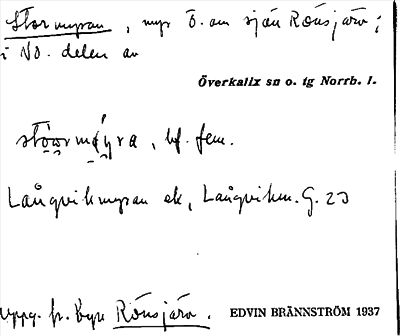 Stormyran, myr ö. om sjön Rönsjärv;
i NO. delen av
Överkalix sn o. tg Norrb. l.
mǿyra, bf. fem.
Laŋgvikmyran ek, Laŋgviken. G. 23
Uppg. fr. byn Rönsjärv. EDVIN BRÄNNSTRÖM 1937